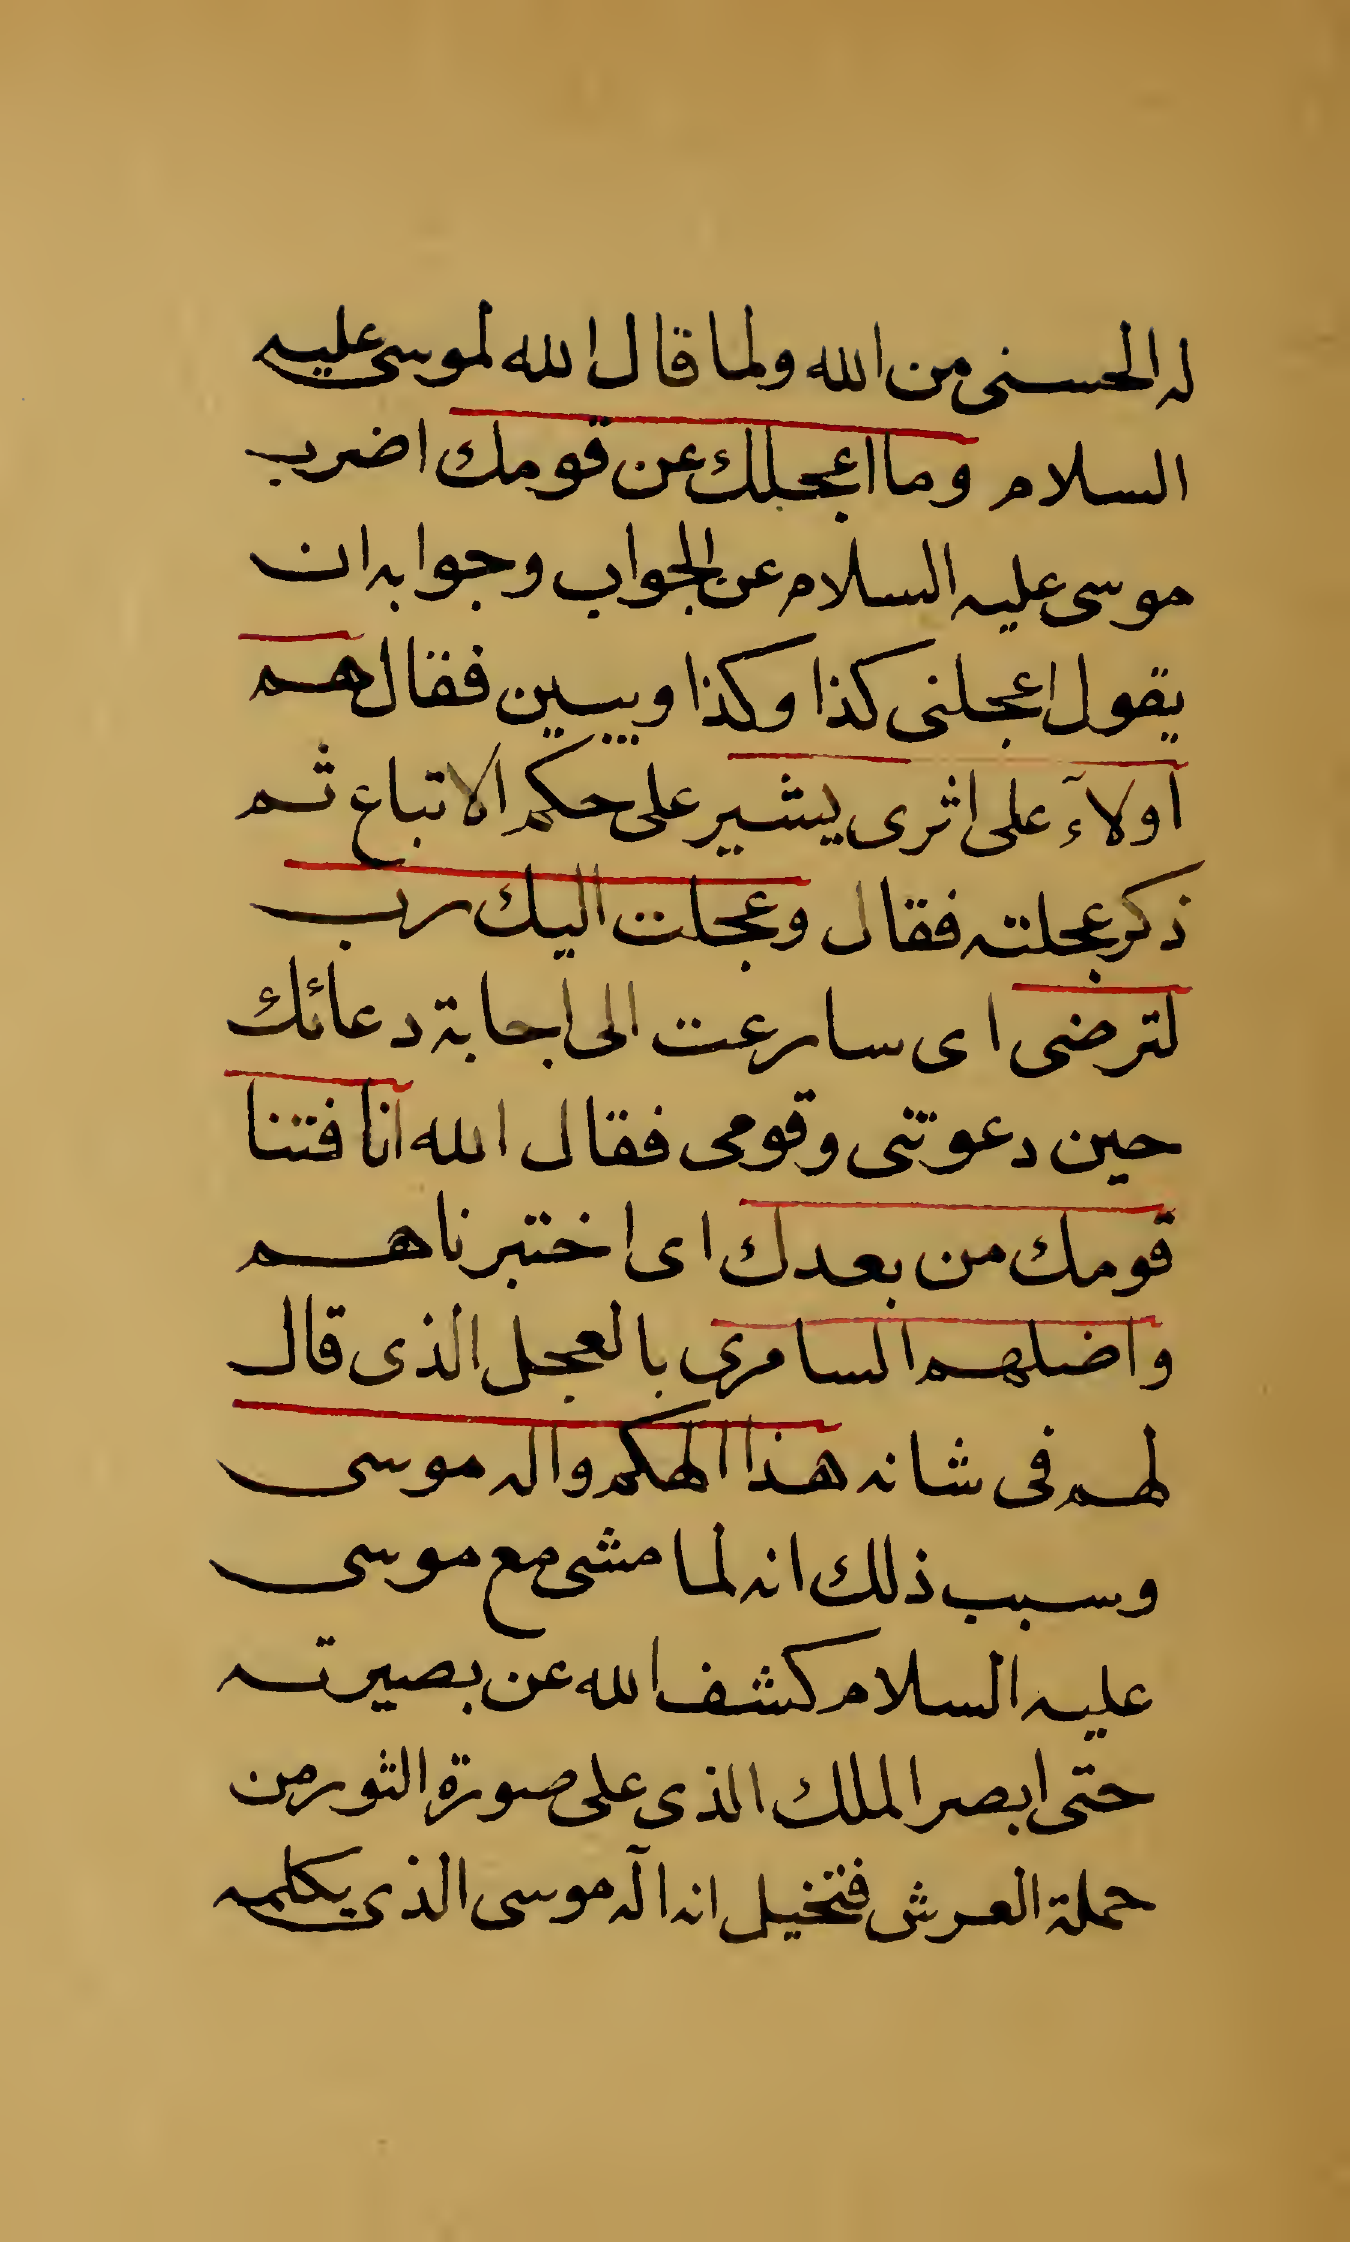 له الحسنى من الله ولما قال الله لموسى عليه
السلام وما اعجلك عن قومك اضرب
موسى عليه السلام عن الجواب وجوابه ان
يقول اعجلنى كذا وكذا ويبين فقال هم
اولآء على اثرى يشير على حكم الاتباع ثم
ذكر عجلته فقال وعجلت اليك رب
لترضى اى سارعت الى اجابة دعائك
حين دعوتنى وقومى فقال الله انا فتنا
قومك من بعدك اى اختبرناهم
واضلهم السامرى بالعجل الذى قال
لهم فى شانه هذا الهكم واله موسى
وسبب ذلك انه لما مشى مع موسى
عليه السلام كشف الله عن بصيرته
حتى ابصر الملك الذى على صورة الثور من
حملة العرش فتخيل انه اله موسى الذى يكلمه